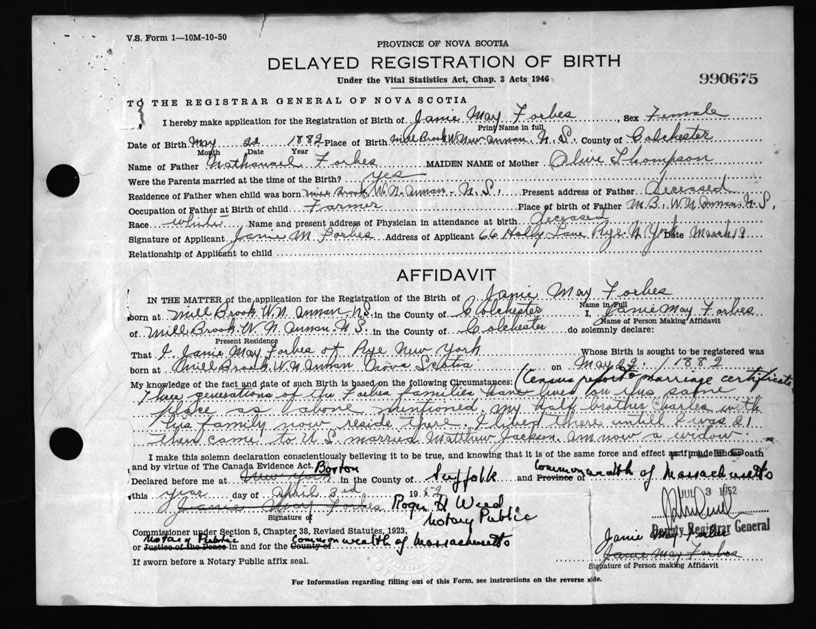 V.S. Form 1—10M-10-50
PROVINCE OF NOVA SCOTIA
DELAYED REGISTRATION OF BIRTH
Under the Vital Statistics Act, Chap. 3 Acts 1946
990675
TO THE REGISTRAR GENERAL OF NOVA SCOTIA
I hereby make application for the Registration of Birth of Janie May Forbes, Sex Female
Print Name in full
Date of Birth May 22 1882 Place of Birth Mill Brook W. New Annan N.S. County of Colchester
Month Date Year
Name of Father Nathanael Forbes MAIDEN NAME of Mother Olive Thompson
Were the Parents married at the time of the Birth? yes
Residence of Father when child was born Mill Brook W. N. Annan - N.S. Present address of Father Deceased
Occupation of Father at Birth of child Farmer Place of Birth of Father M B. W N Annan N.S.
Race white Name and present address of Physician in attendance at birth deceased
Signature of Applicant Janie M Forbes Address of Applicant 66 Holly Lane Rye N York Date March 19
Relationship of Applicant to child
AFFIDAVIT
IN THE MATTER of the application for the Registration of the Birth of Janie May Forbes
born at Mill Brook W. N. Annan N.S. in the County of Colchester I, Janie May Forbes
Name in Full
of Mill Brook W. N. Annan N.S. in the County of Colchester do solemnly declare:
Present Residence
Name of Person Making Affidavit
That I, Janie May Forbes of Rye New York Whose Birth is sought to be registered was
born at Mill Brook W. N. Annan Nova Scotia on May 22 1882
My knowledge of the fact and date of such Birth is based on the following Circumstances: (Census report & marriage certificate
Three generations of the Forbes families have lived on this same
place as above mentioned. My half brother Charles with
his family now reside there. I lived there until I was 21
then came to U.S. married Matthew Jackson. Am now a widow.
I make this solemn declaration conscientiously believing it to be true, and knowing that it is of the same force and effect as if made under oath
and by virtue of The Canada Evidence Act.
Declared before me at New York Boston in the County of Suffolk and Province of Commonwealth of Massachusetts
this year day of April 3rd 1952
JUL 3 1952
Janie May Forbes Roger D Weed
Signature of Notary Public
Deputy Registrar General
Commissioner under Section 5, Chapter 38, Revised Statutes, 1923.
Notary Public Commonwealth of Massachusetts
or Justice of the Peace in and for the County of
Janie May Forbes
Janie May Forbes
If sworn before a Notary Public affix seal.
Signature of Person making Affidavit
For Information regarding filling out of this Form, see instructions on the reverse side.